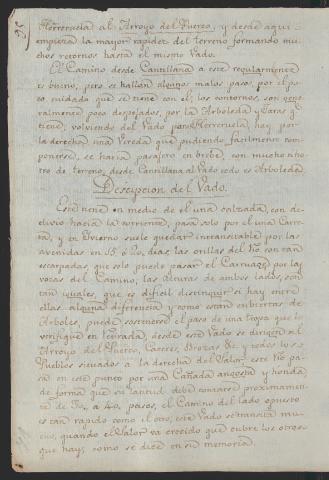 Herreruela al Arroyo del Puerco, y desde aqui
empieza la mayor rapidez del terreno formando mu-
chos retornos hasta el mismo Vado.
El Camino desde Cantillana a este regularmente
es bueno, pero se hallan algunos malos pasos por el po-
co cuidado que se tiene con el, los contornos, son gene-
ralmente poco despejados, por la Arboleda y Xaras q.e
tiene, volviendo del Vado para Herreruela, hay por
la derecha una Vereda que pudiendo facilmente com-
ponerse, se haria pasagero en breve, con mucho aho-
rro de terreno, desde Cantillana al Vado todo es Arboleda
Descripcion del Vado.
Este tiene en medio de el una calzada, con de-
clivio hacia la corriente, pasa solo por el una Carre-
ta, y en Ybierno suele quedar intransitable por las
avenidas en 15, ó 20, dias, las orillas del Rio, son tan
escarpadas que solo puede pasar el Carruage por la
voza del Camino, las Alturas de ambos lados, son
tan iguales, que es dificil distinguir si hay entre
ellas alguna diferencia y como estan cubiertas de
Arboles, puede sostenerse el paso de una tropa que lo
verifique en retirada, desde este Vado se dirigen al
Arroyo del Puerco, Caceres, Brozas &c. y todos los
Pueblos situados a la derecha del Valor: este Rio pa-
sa en este punto por una Cañada angosta y honda,
de forma que su latitud debe contarse proximamen-
te de 30, a 40, pasos, el Camino del lado opuesto
es tan rapido como el otro, este Vado se transita mu-
cho, quando el Valor va crecido que cubre los otros
que hay, como se dice en su memoria.